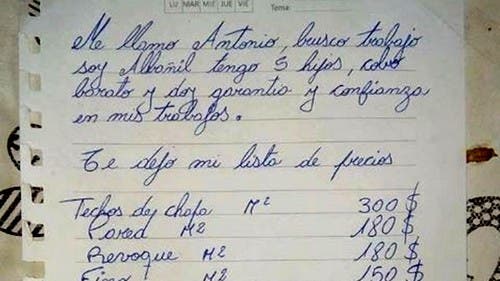 LU MAR MIE JUE VIE
Tema:
Me llamo Antonio, busco trabajo
soy Albañil tengo 5 hijos, cobro
barato y doy garantia y confianza
en mis trabajos.
Te dejo mi lista de precios
Techos de chapa M² 300 $
Pared M² 180 $
Revoque M² 180 $
Fino M² 150 $